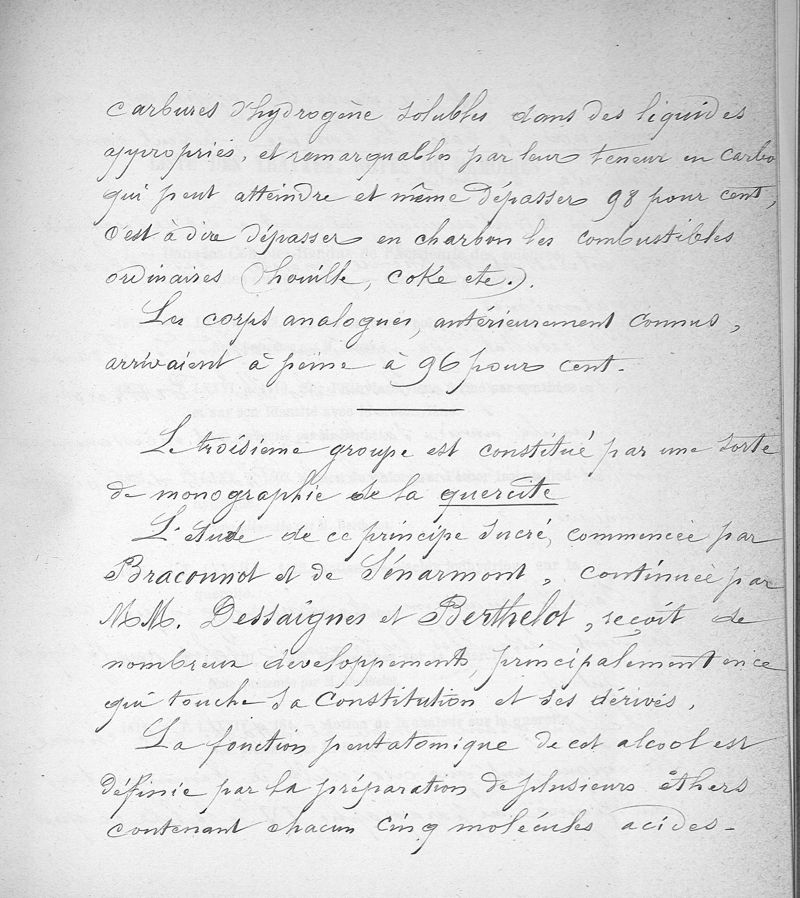 carbures d'hydrogène solubles dans des liquides
appropriés, et remarquables par leur teneur en carbo
qui peut atteindre et même dépasser 98 pour cent,
c'est à dire dépasser en charbon les combustibles
ordinaires (houille, coke etc.).
Les corps analogues, antérieurement connus,
arrivaient à peine à 96 pour cent.
Le troisième groupe est constitué par une sorte
de monographie de la quercite
L'étude de ce principe sucré, commencée par
Braconnot et de Sénarmont, continuée par
MM. Dessaignes et Berthelot, reçoit de
nombreux developpements, principalement en ce
qui touche sa Constitution et ses dérivés.
La fonction pentatomique de cet alcool est
définie par la préparation de plusieurs éthers
contenant chacun cinq molécules acides.